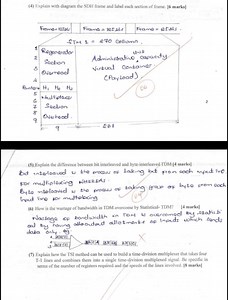 (4) Explain with diagram the SDH frame and label each section of frame. [6 marks]
Frame=125us Frame=125us Frame=125us
STM 1 = 270 Column.
Regenerator
Section
Overhead
Administrative unit capacity
virtual container
(Payload).
Pointer H1 H2 H3
Multiplex
Section
Overhead.
9 261
(5) Explain the difference between bit interleaved and byte interleaved TDM. [4 marks]
Bit interleaved is the process of taking bit from each input line
for multiplexing
Byte interleaved is the process of taking byte from each
input line for multiplexing
(6) How is the wastage of bandwidth in TDM overcome by Statistical- TDM? [4 marks]
Wastage of bandwidth in TDM is overcomed by statisti
cal by having
data only
(7) Explain how the TSI method can be used to build a time division multiplexer that takes four
T-1 lines and combines them into a single time-division multiplexed signal. Be specific in
terms of the number of registers required and the speeds of the lines involved. [8 marks]